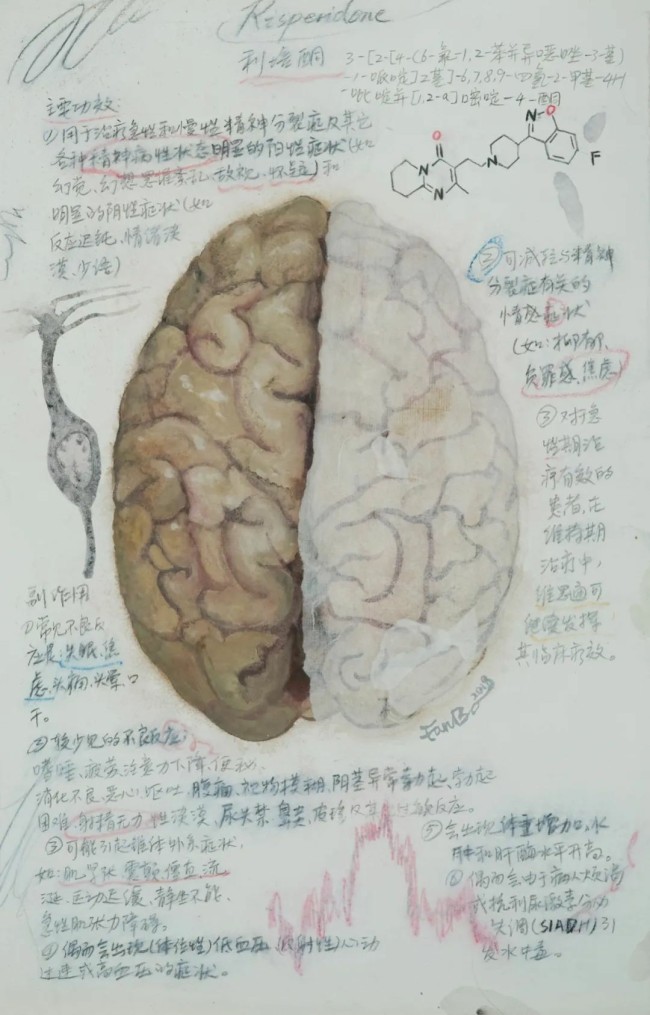 Risperidone
利培酮
3-[2-[4-(6-氟-1,2-苯并异噁唑-3-基)
-1-哌啶]乙基]-6,7,8,9-四氢-2-甲基-4H
-吡啶并[1,2-a]嘧啶-4-酮
主要功效:
①用于治疗急性和慢性精神分裂症及其它
各种精神病性状态明显的阳性症状(如
幻觉、幻想、思维紊乱、敌视、怀疑)和
明显的阴性症状(如
反应迟钝、情绪淡
漠、少语)
N
O
O
N
N
N
F
②可减轻与精神
分裂症有关的
情感症状
(如:抑郁、
负罪感、焦虑)
③对于急
性期治
疗有效的
患者,在
维持期
治疗中,
维思通可
继续发挥
其临床疗效。
副作用
①常见不良反
应是:失眠、焦
虑、头痛、头晕、口
干。
FanB.2018
②较少见的不良反应:
嗜睡、疲劳、注意力下降、便秘、
消化不良、恶心、呕吐、腹痛、视物模糊、阴茎异常勃起、勃起
困难、射精无力、性淡漠、尿失禁、鼻炎、皮疹及其他过敏反应。
③可能引起锥体外系症状,
如:肌紧张、震颤、僵直、流
涎、运动迟缓、静坐不能、
急性肌张力障碍。
④偶而会出现(体位性)低血压、(反射性)心动
过速或高血压的症状。
⑤会出现体重增加、水
肿和肝酶水平升高。
⑥偶而会由于病人烦渴
或抗利尿激素分泌
失调(SIADH)引
发水中毒。